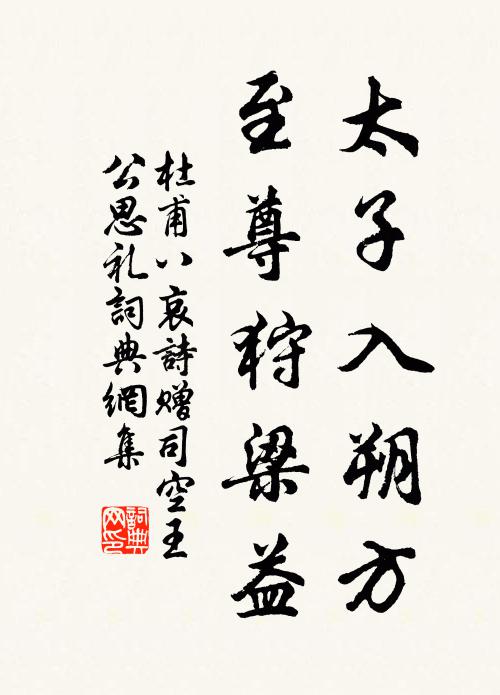 太子入朔方
至尊狩梁益
杜甫八哀詩贈司空王
公思礼詞典網集
詞典
网印